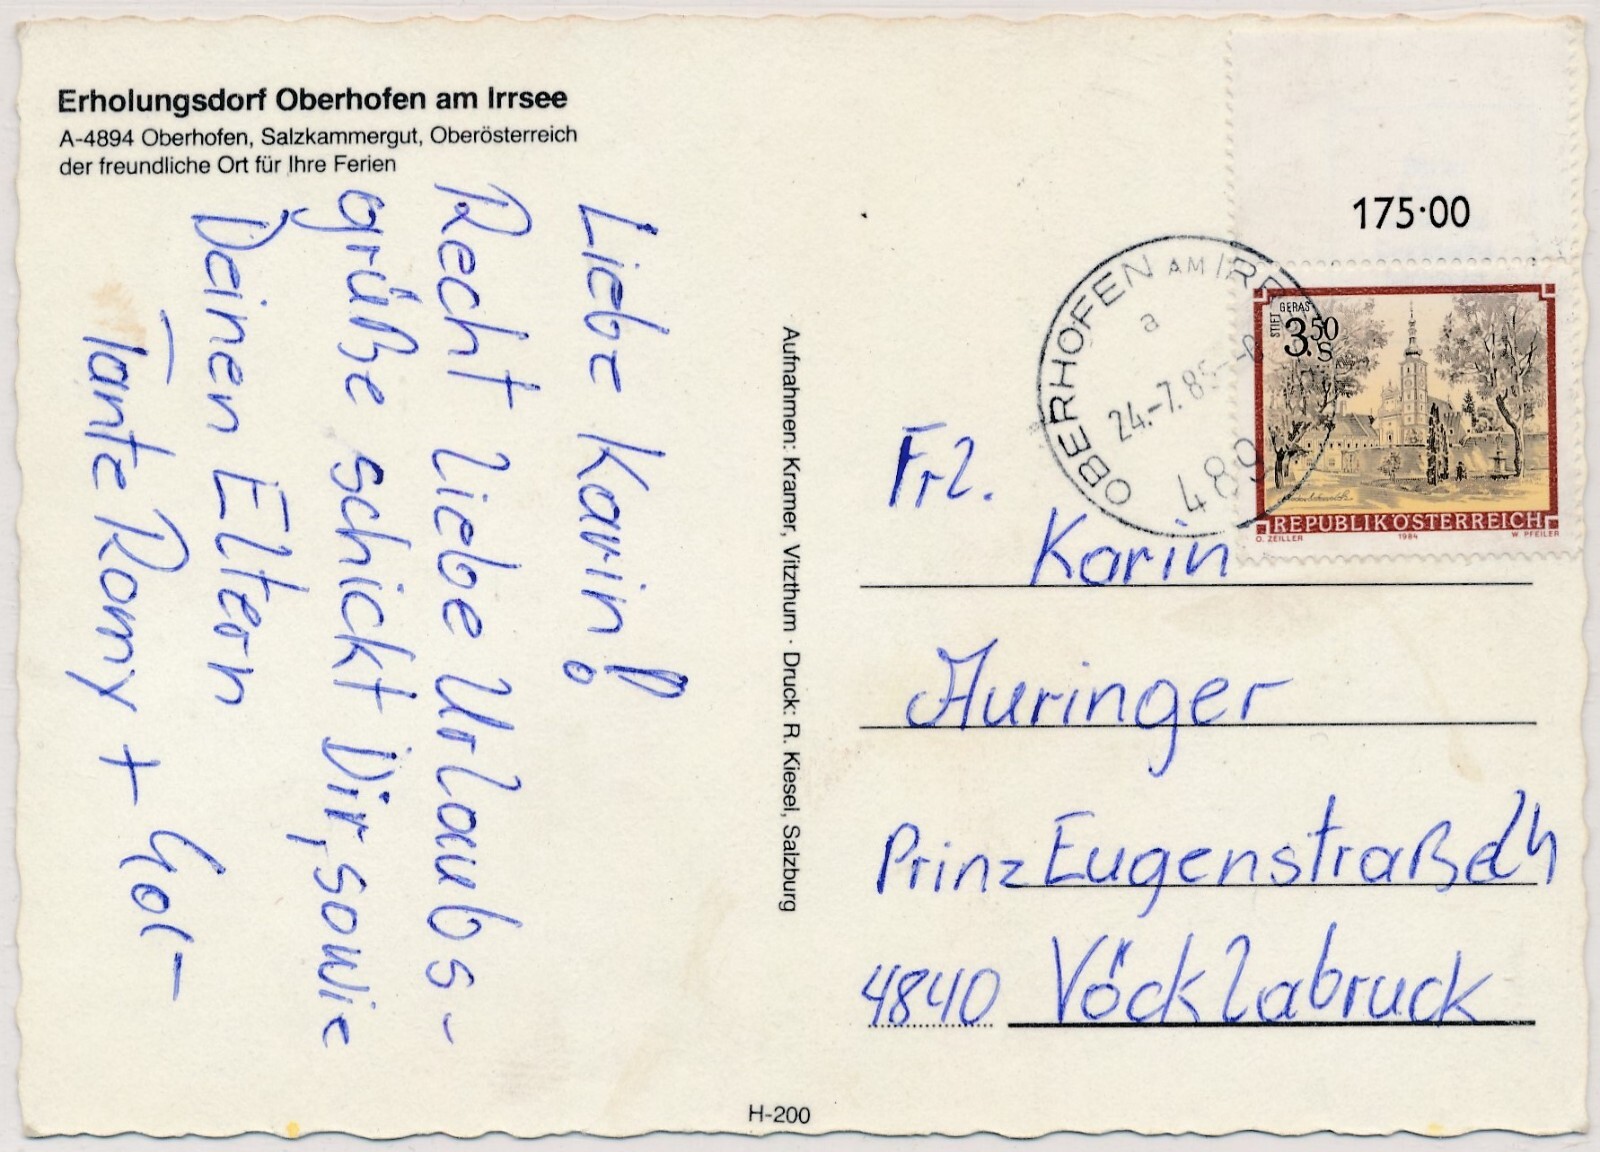 Erholungsdorf Oberhofen am Irrsee
A-4894 Oberhofen, Salzkammergut, Oberösterreich
der freundliche Ort für Ihre Ferien
Liebe Karin!
Recht liebe Urlaubs-
grüße schickt Dir, sowie
Deinen Eltern
Tante Romy +
Aufnahmen: Kramer, Vitzthum · Druck: R. Kiesel, Salzburg
H-200
175·00
OBERHOFEN AM IRR
a
24.-7.85
489
STIFT GERAS
3.50 S
REPUBLIK ÖSTERREICH
O. ZEILLER 1984 W. PFEILER
Frl.
Karin
Auringer
Prinz Eugenstraße
4840 Vöcklabruck